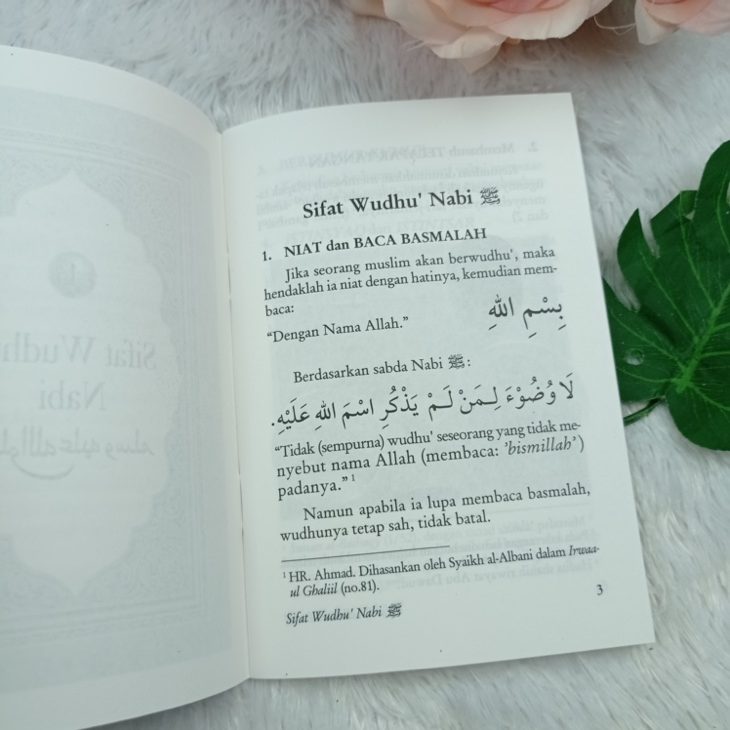 Sifat Wudhu' Nabi ﷺ
1. NIAT dan BACA BASMALAH
Jika seorang muslim akan berwudhu', maka
hendaklah ia niat dengan hatinya, kemudian mem-
baca:
بِسْمِ اللهِ
“Dengan Nama Allah.”
Berdasarkan sabda Nabi ﷺ:
لَا وُضُوْءَ لِمَنْ لَمْ يَذْكُرِ اسْمَ اللهِ عَلَيْهِ.
“Tidak (sempurna) wudhu' seseorang yang tidak me-
nyebut nama Allah (membaca: 'bismillah')
padanya.” 1
Namun apabila ia lupa membaca basmalah,
wudhunya tetap sah, tidak batal.
1 HR. Ahmad. Dihasankan oleh Syaikh al-Albani dalam Irwaa-
ul Ghaliil (no.81).
Sifat Wudhu' Nabi ﷺ
3